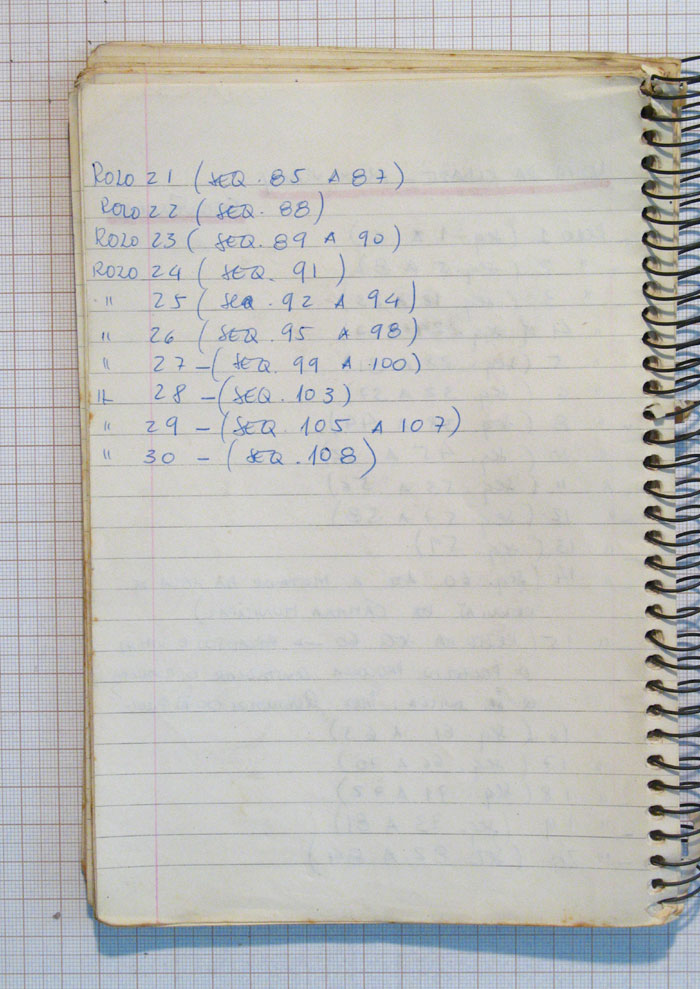 ROLO 21 (SEQ. 85 A 87)
ROLO 22 (SEQ. 88)
ROLO 23 (SEQ. 89 A 90)
ROLO 24 (SEQ. 91)
" 25 (SEQ. 92 A 94)
" 26 (SEQ. 95 A 98)
" 27 - (SEQ. 99 A 100)
" 28 - (SEQ. 103)
" 29 - (SEQ. 105 A 107)
" 30 - (SEQ. 108)